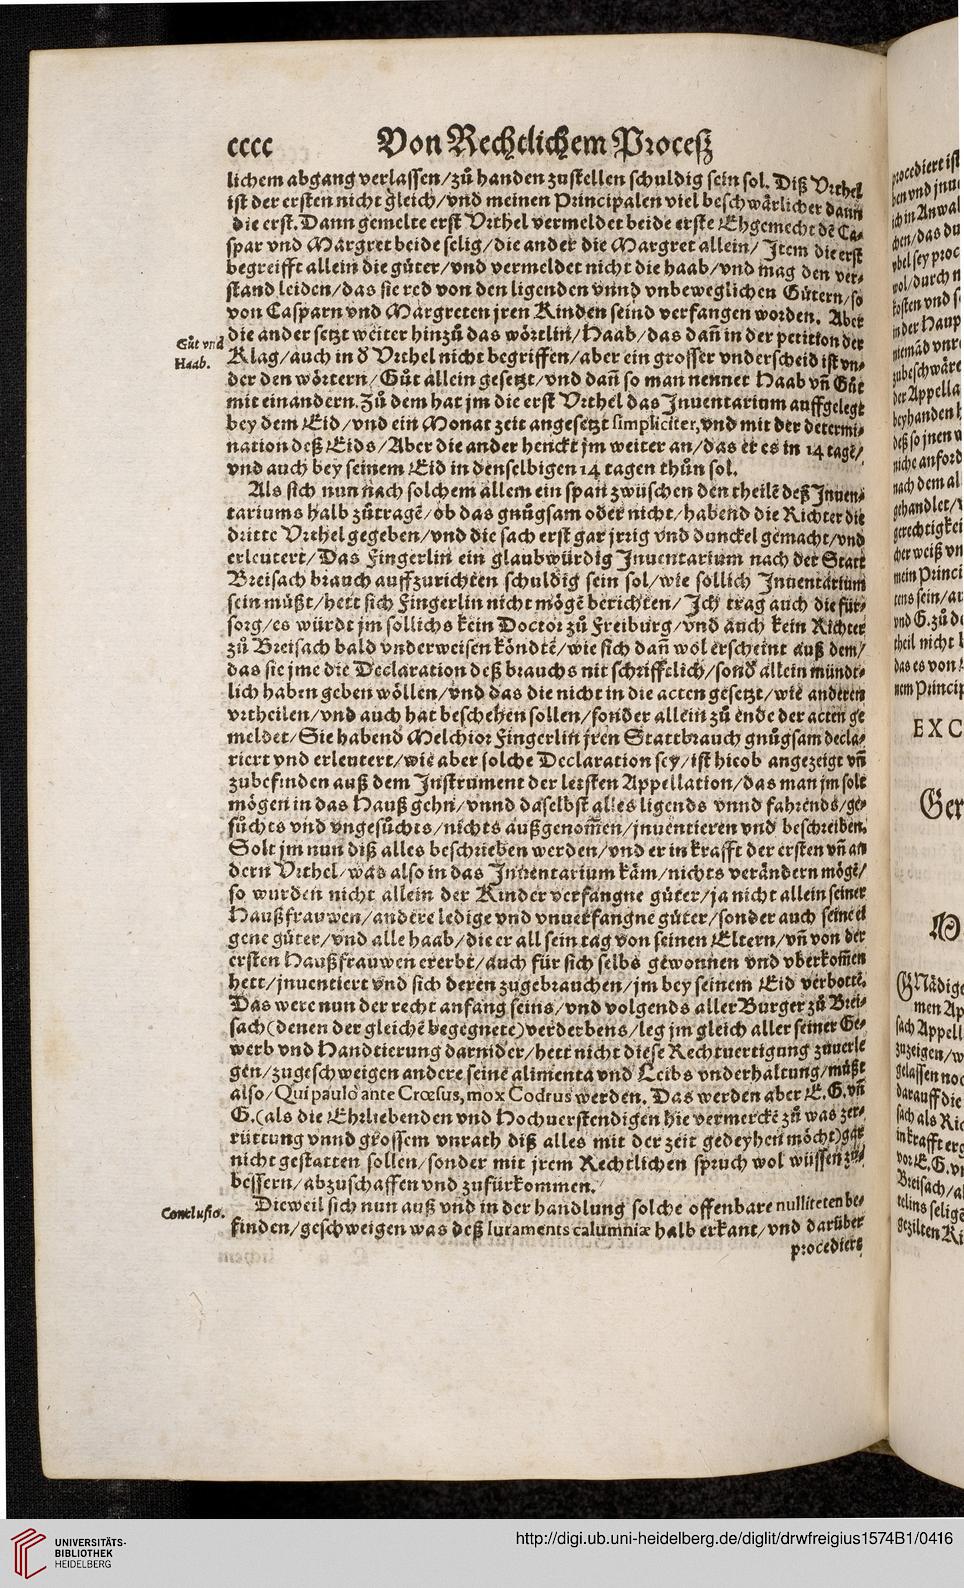 cccc Von Rechtlichem Proceſz
lichem abgang verlaſſen/zů handen zuſtellen ſchuldig ſein ſol. Diß Vrthel
iſt der erſten nicht gleich/vnd meinen Principalen viel beſchwärlicher dann
die erſt. Dann gemelte erſt Vrthel vermeldet beide erſte Ehgemecht dẽ Ca-
ſpar vnd Margret beide ſelig/die ander die Margret allein/ Item die erſt
begreifft allein die güter/vnd vermeldet nicht die haab/vnd mag den ver-
ſtand leiden/das ſie red von den ligenden vnnd vnbeweglichen Gütern/ſo
von Caſparn vnd Margreten jren Kinden ſeind verfangen worden. Aber
die ander ſetzt weiter hinzů das wörtlin/Haab/das dañ in der petition der
Gůt vnd
Haab.
Klag/auch in đ Vrthel nicht begriffen/aber ein groſſer vnderſcheid iſt vn-
der den wörtern/Gůt allein geſetzt/vnd dañ ſo man nennet Haab vñ Gůt
mit einandern. Zů dem hat jm die erſt Vrthel das Inuentarium auffgelegt
bey dem Eid/vnd ein Monat zeit angeſetzt ſimpliciter, vnd mit der determi-
nation deß Eids/Aber die ander henckt jm weiter an/das er es in 14 tagẽ/
vnd auch bey ſeinem Eid in denſelbigen 14 tagen thůn ſol.
Als ſich nun nach ſolchem allem ein ſpan zwüſchen den theilẽ deß Inuen-
tariums halb zůtragẽ/ob das gnůgſam oder nicht/habend die Richter die
dritte Vrthel gegeben/vnd die ſach erſt gar jrrig vnd dunckel gemacht/vnd
erleutert/Das Fingerlin ein glaubwürdig Inuentarium nach der Statt
Breiſach brauch auffzurichten ſchuldig ſein ſol/wie ſollich Inuentarium
ſein müßt/hett ſich Fingerlin nicht mögẽ berichten/ Ich trag auch die für-
ſorg/es würdt jm ſollichs kein Doctor zů Freiburg/vnd auch kein Richter
zů Breiſach bald vnderweiſen köndtẽ/wie ſich dañ wol erſcheint auß dem/
das ſie jme die Declaration deß brauchs nit ſchrifftlich/ſonđ allein mündt-
lich haben geben wöllen/vnd das die nicht in die acten geſetzt/wie anderen
vrtheilen/vnd auch hat beſchehen ſollen/ſonder allein zů ende der acten ge
meldet/Sie habend Melchior Fingerlin jren Stattbrauch gnůgſam decla-
riert vnd erleutert/wie aber ſolche Declaration ſey/iſt hieob angezeigt vñ
zubefinden auß dem Inſtrument der letſten Appellation/das man jm ſolt
mögen in das Hauß gehn/vnnd daſelbſt alles ligends vnnd fahrends/ge-
ſůchts vnd vngeſůchts/nichts außgenom̃en/jnuentieren vnd beſchreiben.
Solt jm nun diß alles beſchrieben werden/vnd er in krafft der erſten vñ an
dern Vrthel/was alſo in das Inuentarium käm/nichts verändern mögẽ/
ſo wurden nicht allein der Kinder verfangne güter/ja nicht allein ſeiner
Haußfrauwen/andere ledige vnd vnuerfangne güter/ſonder auch ſeine ei
gene güter/vnd alle haab/die er all ſein tag von ſeinen Eltern/vñ von der
erſten Haußfrauwen ererbt/auch für ſich ſelbs gewonnen vnd vberkom̃en
hett/jnuentiert vnd ſich deren zugebrauchen/jm bey ſeinem Eid verbottẽ.
Das were nun der recht anfang ſeins/vnd volgends aller Burger zů Brei-
ſach (denen der gleichẽ begegnete) verderbens/leg jm gleich aller ſeiner Ge-
werb vnd Handtierung darnider/hett nicht dieſe Rechtuertigung zuuerle
gen/zugeſchweigen andere ſeine alimenta vnd Leibs vnderhaltung/müßt
alſo/Qui paulò ante Crœſus, mox Codrus werden. Das werden aber E. G. vñ
G. (als die Ehrliebenden vnd Hochuerſtendigen hie vermerckẽ zů was zer-
rüttung vnnd groſſem vnrath diß alles mit der zeit gedeyhen möcht) gar
nicht geſtatten ſollen/ſonder mit jrem Rechtlichen ſpruch wol wüſſen zů-
beſſern/abzuſchaffen vnd zufürkommen.
Concluſio.
Dieweil ſich nun auß vnd in der handlung ſolche offenbare nulliteten be-
finden/geſchweigen was deß Iuraments calumniæ halb erkant/vnd darüber
procediert
EXC
Ger
UNIVERSITÄTS-
BIBLIOTHEK
HEIDELBERG
http://digi.ub.uni-heidelberg.de/diglit/drwfreigius1574B1/0416